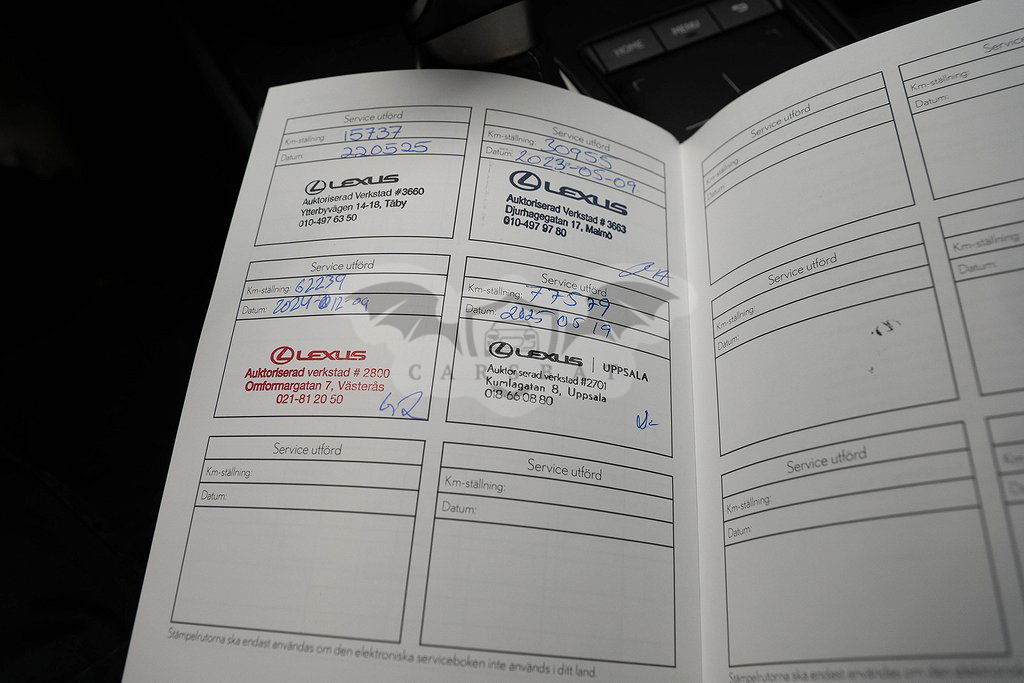 HOME
MENU
Service utförd
Km-ställning: 15737
Datum: 220525
LEXUS
Auktoriserad Verkstad #3660
Ytterbyvägen 14-18, Täby
010-497 63 50
Service utförd
Km-ställning: 30955
Datum: 2023-05-09
LEXUS
Auktoriserad Verkstad # 3663
Djurhagegatan 17, Malmö
010-497 97 80
Service utförd
Km-ställning: 62239
Datum: 2024-012-09
LEXUS
Auktoriserad verkstad # 2800
Omformargatan 7, Västerås
021-81 20 50
Service utförd
Km-ställning: 77579
Datum: 2025 05 19
LEXUS | UPPSALA
Auktoriserad verkstad #2701
Kumlagatan 8, Uppsala
018-66 08 80
CAR BAT
Service utförd
Km-ställning:
Datum:
Service utförd
Km-ställning:
Datum:
Stämpelrutorna ska endast användas om den elektroniska serviceboken inte används i ditt land.
Service utförd
Km-ställning:
Datum:
Service
Km-ställning:
Datum:
Service utförd
Km-ställning:
Datum:
Km-ställning:
Datum:
Service utförd
Km-ställning:
Datum:
Stämpelrutorna ska endast användas om den elektroniska